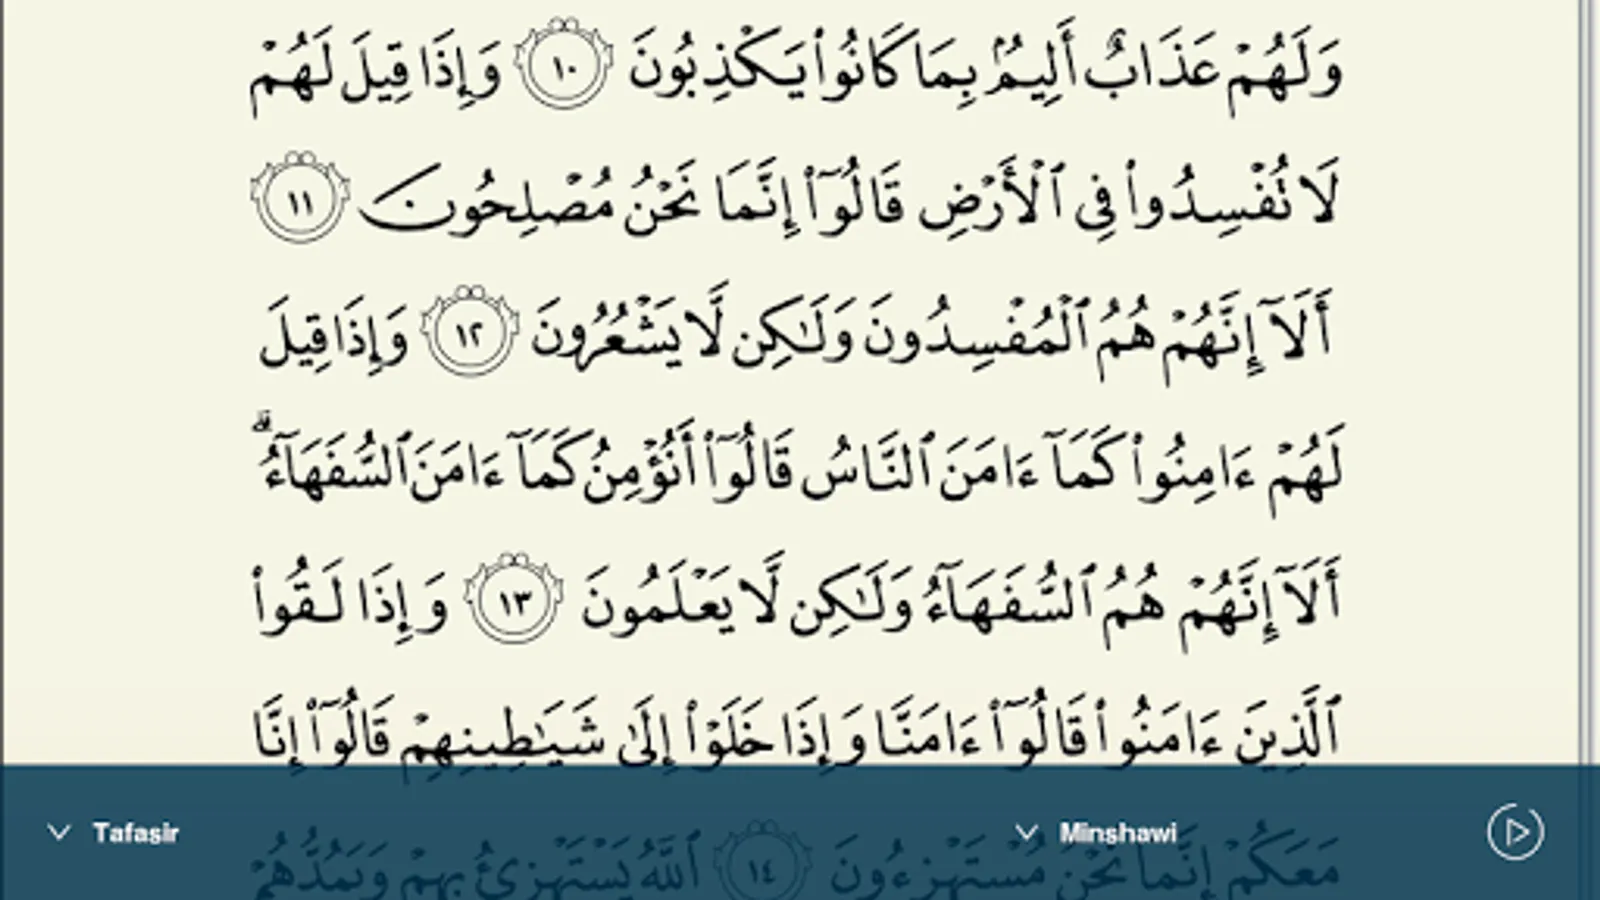 وَلَهُمْ عَذَابٌ أَلِيمُۢ بِمَا كَانُوا۟ يَكْذِبُونَ ١٠ وَإِذَا قِيلَ لَهُمْ
لَا تُفْسِدُوا۟ فِى ٱلْأَرْضِ قَالُوٓا۟ إِنَّمَا نَحْنُ مُصْلِحُونَ ١١
أَلَآ إِنَّهُمْ هُمُ ٱلْمُفْسِدُونَ وَلَـٰكِن لَّا يَشْعُرُونَ ١٢ وَإِذَا قِيلَ
لَهُمْ ءَامِنُوا۟ كَمَآ ءَامَنَ ٱلنَّاسُ قَالُوٓا۟ أَنُؤْمِنُ كَمَآ ءَامَنَ ٱلسُّفَهَآءُ ۗ
أَلَآ إِنَّهُمْ هُمُ ٱلسُّفَهَآءُ وَلَـٰكِن لَّا يَعْلَمُونَ ١٣ وَإِذَا لَقُوا۟
ٱلَّذِينَ ءَامَنُوا۟ قَالُوٓا۟ ءَامَنَّا وَإِذَا خَلَوْا۟ إِلَىٰ شَيَـٰطِينِهِمْ قَالُوٓا۟ إِنَّا
مَعَكُمْ إِنَّمَا نَحْنُ مُسْتَهْزِءُونَ ١٤ ٱللَّهُ يَسْتَهْزِئُ بِهِمْ وَيَمُدُّهُمْ
Tafasir
Minshawi